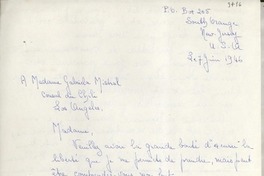 P.O. Box 205
South Orange
New Jersey
U.S.A
27 Juin 1946
A Madame Gabriela Mistral
Consul du Chile
Los Angeles.
Madame,
Veuillez avoir la grande bonté d'excuser la
liberté que je me permets de prendre, mais peut
être comprendrez-vous